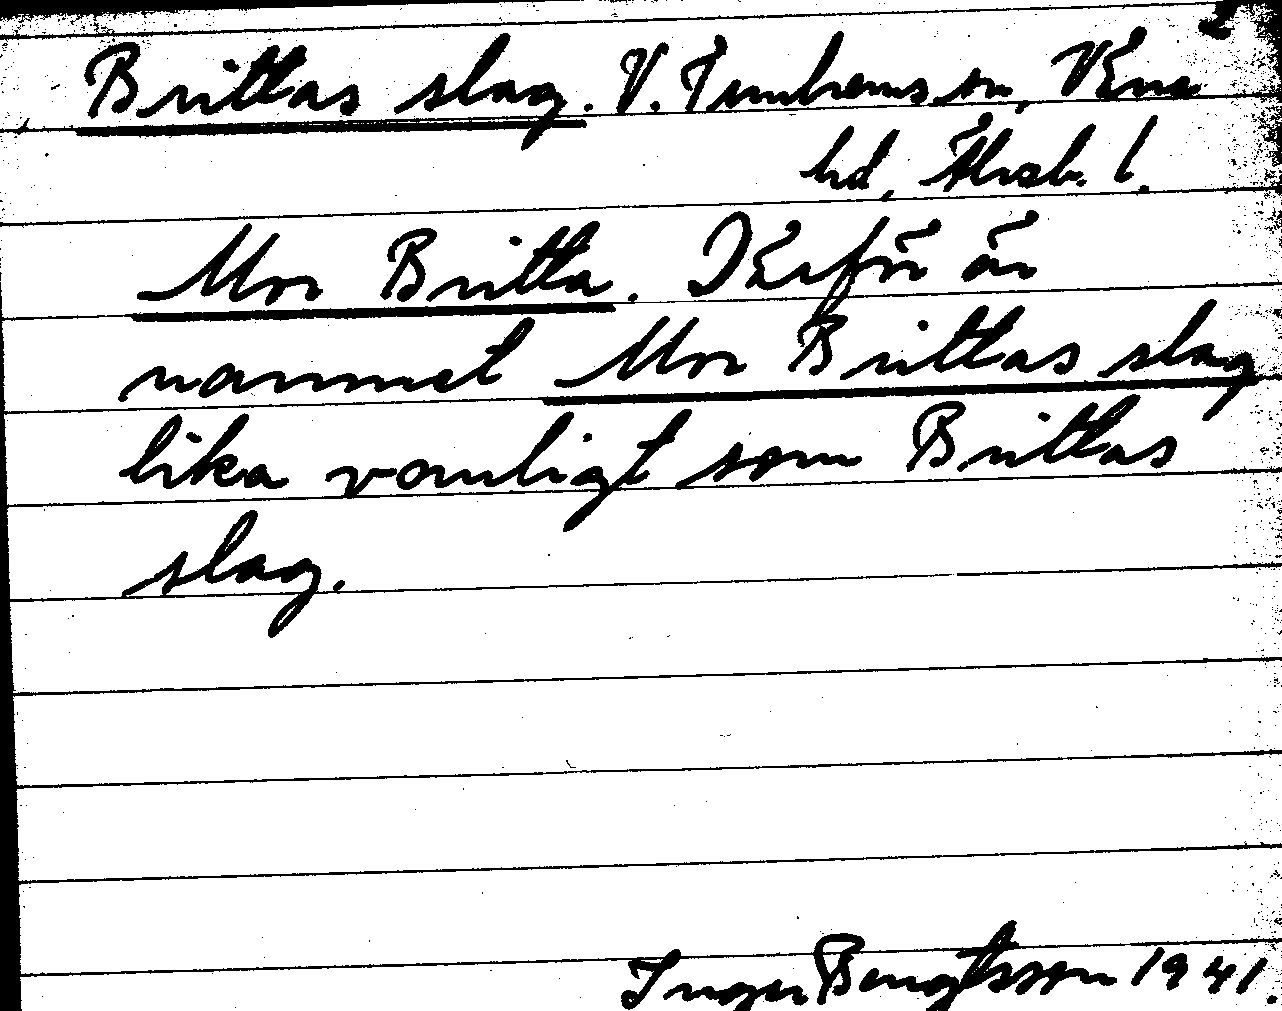 2
Brittas slag. V. Tunhems sn, Väne
hd, Älvsb. l.
Mor Britta. Därför är
namnet Mor Brittas slag
lika vanligt som Brittas
slag.
Inger Bengtsson 1941.